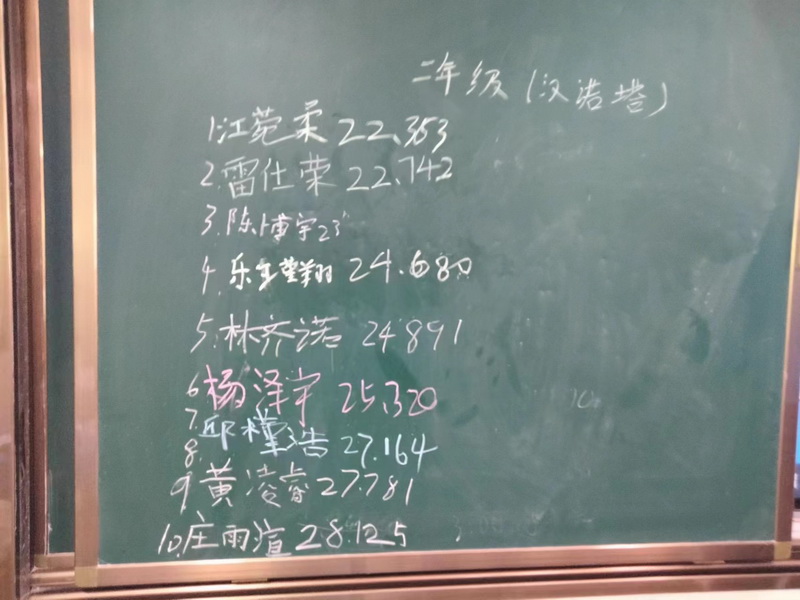 二年级(汉诺塔)
1.江菀柔 22.353
2.雷仕荣 22.742
3.陈博宇 23"
4.乐 翔 24.680
5.林齐诺 24.891
6 杨泽宇 25.320
7.
8. 邱槿浩 27.164
9 黄凌睿 27.781
10.庄雨渲 28.125